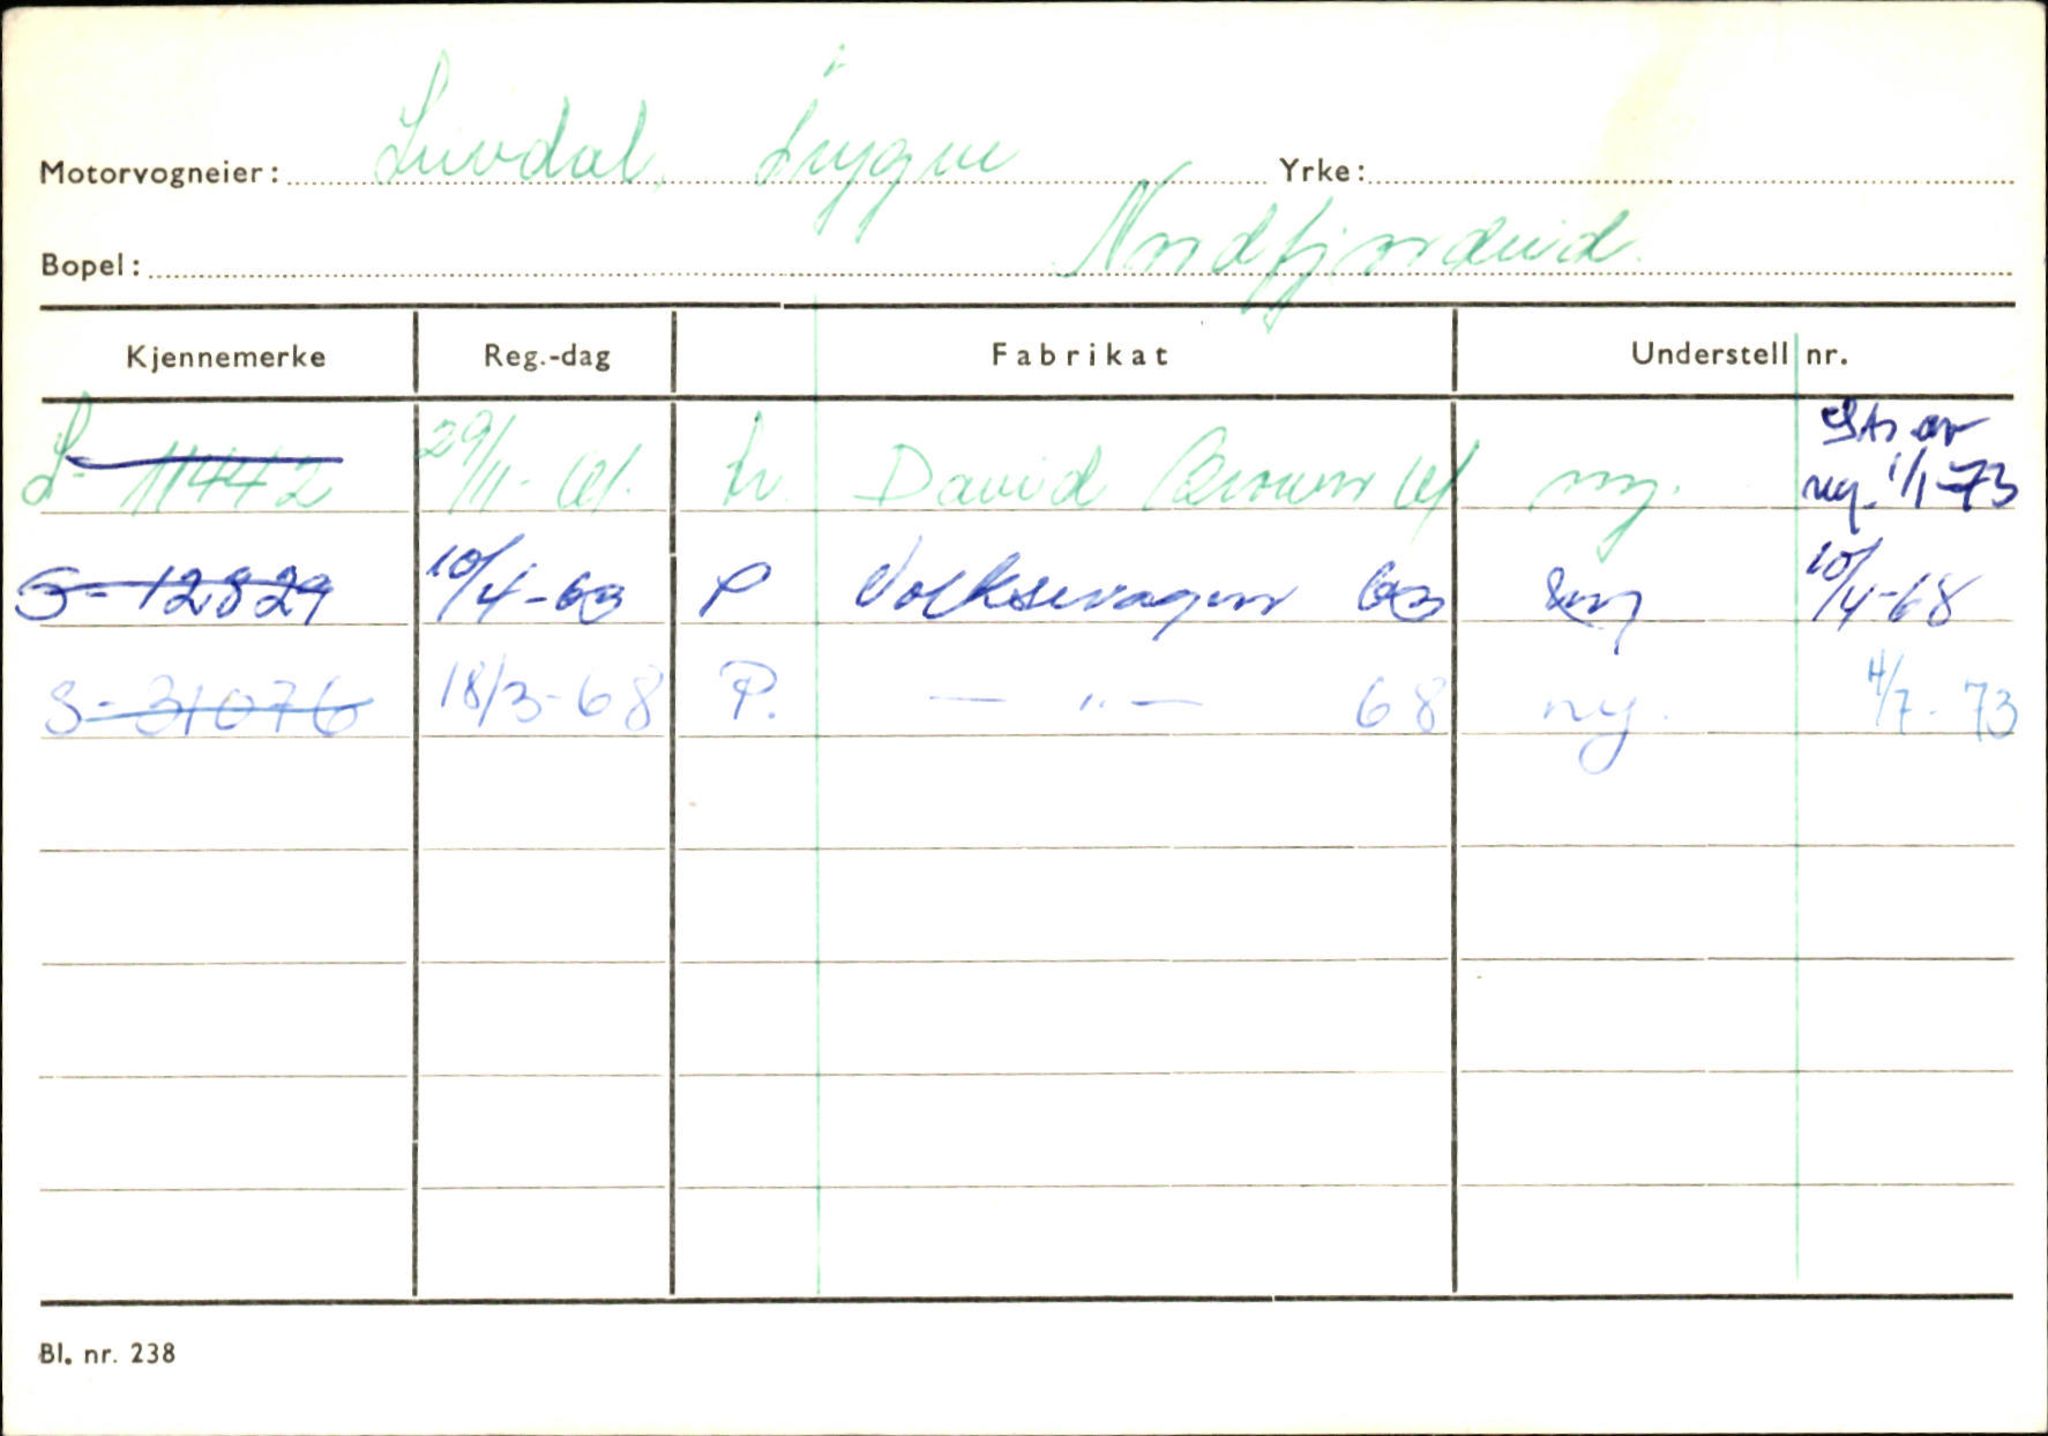 Motorvogneier: Livdal, Trygve Yrke:
Bopel: Nordfjordeid.
Kjennemerke Reg.-dag Fabrikat Understell nr.
S-11442 29/11-61. tr. David Brown 61 ny. Str. av reg. 1/1-73
S-12829 10/4-63 P Volkswagen 63 ny 10/4-68
S-31076 18/3-68 P. — " — 68 ny. 4/7-73
Bl. nr. 238